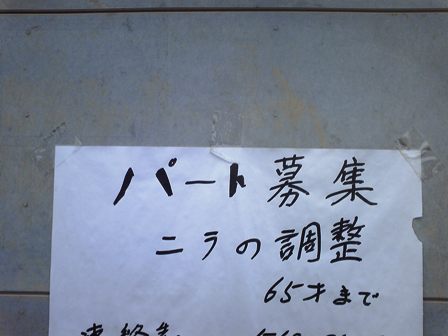 パート募集
ニラの調整
65才まで